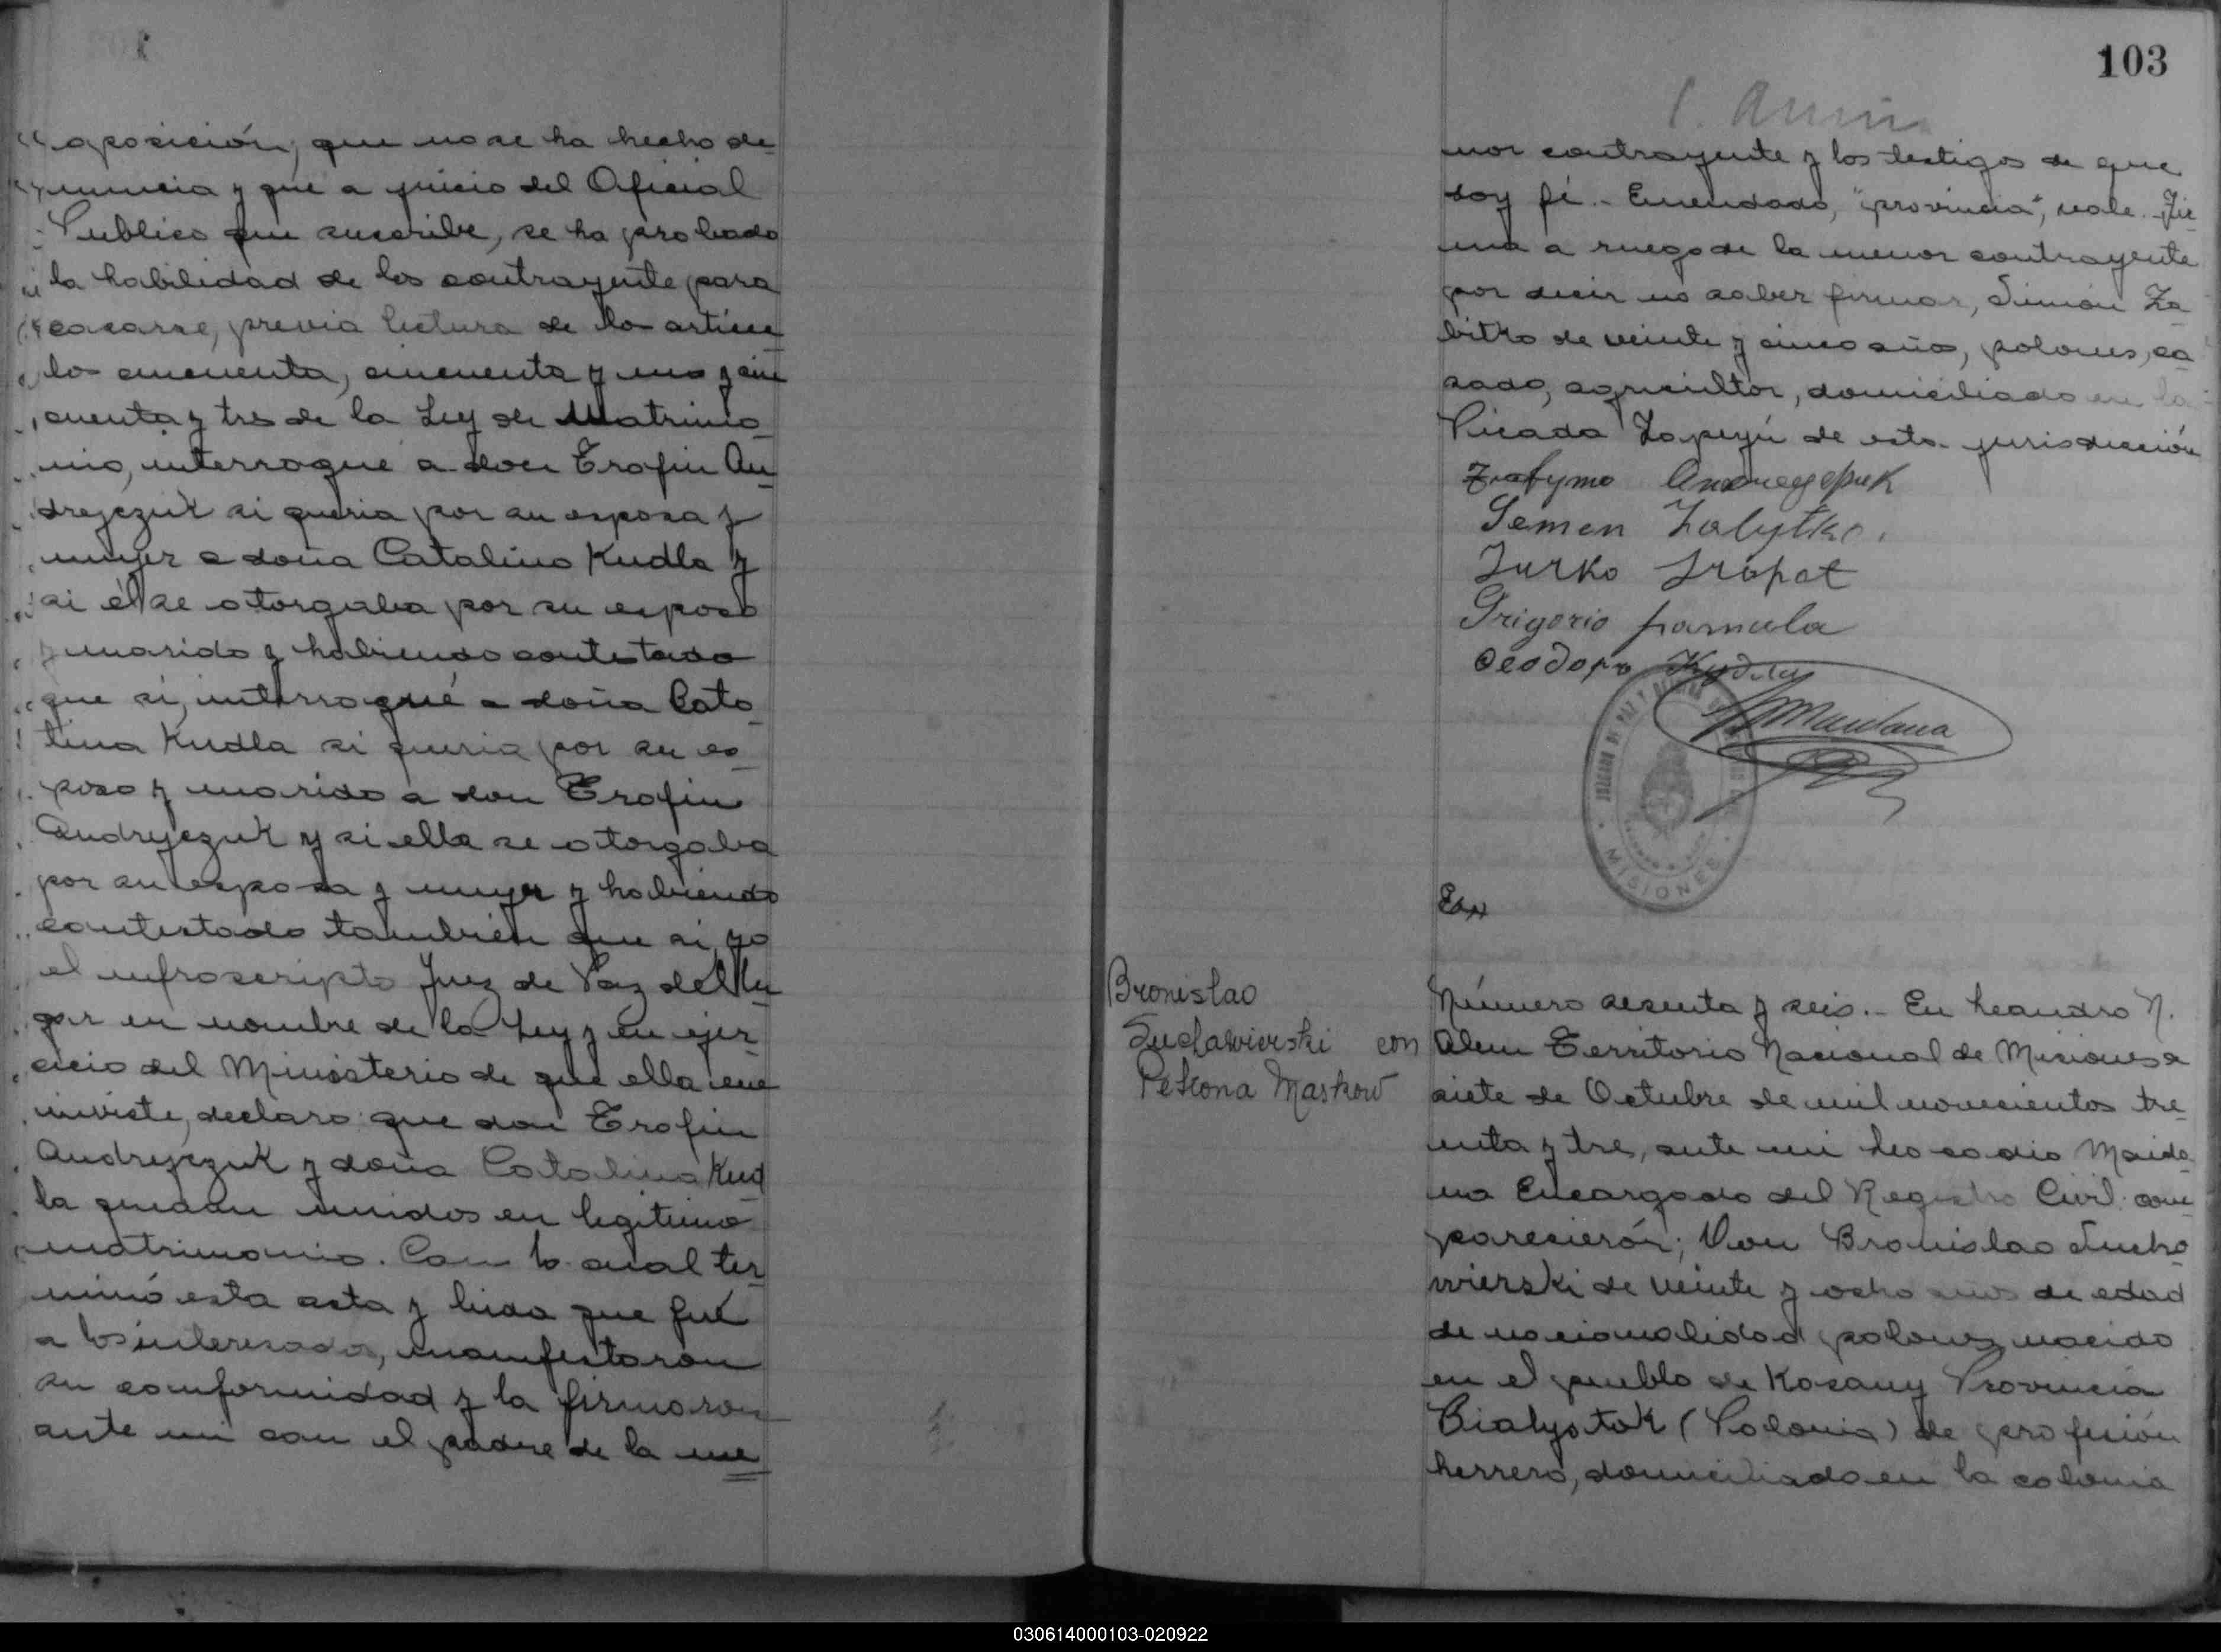 oposición, que no se ha hecho de-
nuncia y que a juicio del Oficial
Publico que suscribe, se ha probado
la habilidad de los contrayente para
casarse, previa lectura de lo artícu-
los cincuenta, cincuenta y uno y cin
cuenta y tres de la Ley de Matrimo-
nio, interrogué a don Trofin An-
drejczuk si queria por su esposa y
mujer a doña Catalina Kudla y
si él se otorgaba por su esposo
y marido y habiendo contestado
que si, interrogué a doña Cata-
lina Kudla si queria por su es-
poso y marido a don Trofin
Andrejczuk y si ella se otorgaba
por su esposa y mujer y habiendo
contestado también que si, yo
el infroscripto Juez de Paz del lu-
gar en nombre de la Ley y en ejer-
cicio del Ministerio de que ella me
inviste, declaro que don Trofin
Andrejczuk y doña Catalina Kud
la quedan unidos en legitimo
matrimonio. Con lo cual ter-
minó esta acta y leida que fué
a los interesados, manifestaron
su conformidad y la firmaron
ante mi con el padre de la me
103
nor contrayente y los testigos de que
doy fé.- Enmendado, "provincia", vale. Fir-
ma a ruego de la menor contrayente
por decir no saber firmar, Simón Za-
bitko de veinte y cinco año, polones, ca-
sado, agricultor, domiciliado en la
Picada Yapeyú de esta jurisdicción
Semen Zalytko.
Jurko
Grigorio
Teodoro Kudla
Maidana
JUZGADO DE PAZ Y
MISIONES
Bronislao
Suchawierski con
Petrona Maskow
Número sesenta y seis.- En Leandro N.
Alem Territorio Nacional de Misiones a
siete de Octubre de mil novecientos tre-
inta y tres, ante mi Leocadio Maida-
na Encargado del Registro Civil com-
parecierón; Don Bronislao Sucha-
wierski de veinte y ocho años de edad
de nacionalidad polones, nacido
en el pueblo de Kosany Provincia
Bialystok (Polonia) de profesión
herrero, domiciliado en la colonia
030614000103-020922